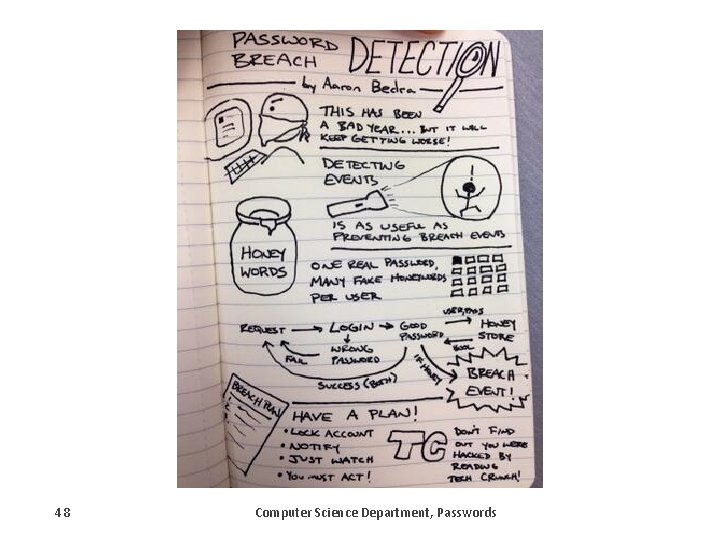 PASSWORD
BREACH
DETECTION
by Aaron Bedra
THIS HAS BEEN
A BAD YEAR... BUT IT WILL
KEEP GETTING WORSE!
DETECTING
EVENTS
!
IS AS USEFUL AS
PREVENTING BREACH EVENTS
HONEY
WORDS
ONE REAL PASSWORD,
MANY FAKE HONEYWORDS
PER USER
REQUEST
LOGIN
GOOD
PASSWORD
USER, PASS
HONEY
STORE
BOOL
WRONG
PASSWORD
FAIL
SUCCESS (BOTH)
IF HONEY
BREACH
EVENT!
BREACH PLAN
HAVE A PLAN!
• LOCK ACCOUNT
• NOTIFY
• JUST WATCH
• YOU MUST ACT!
TC
DON'T FIND
OUT YOU WERE
HACKED BY
READING
TECH CRUNCH!
48
Computer Science Department, Passwords